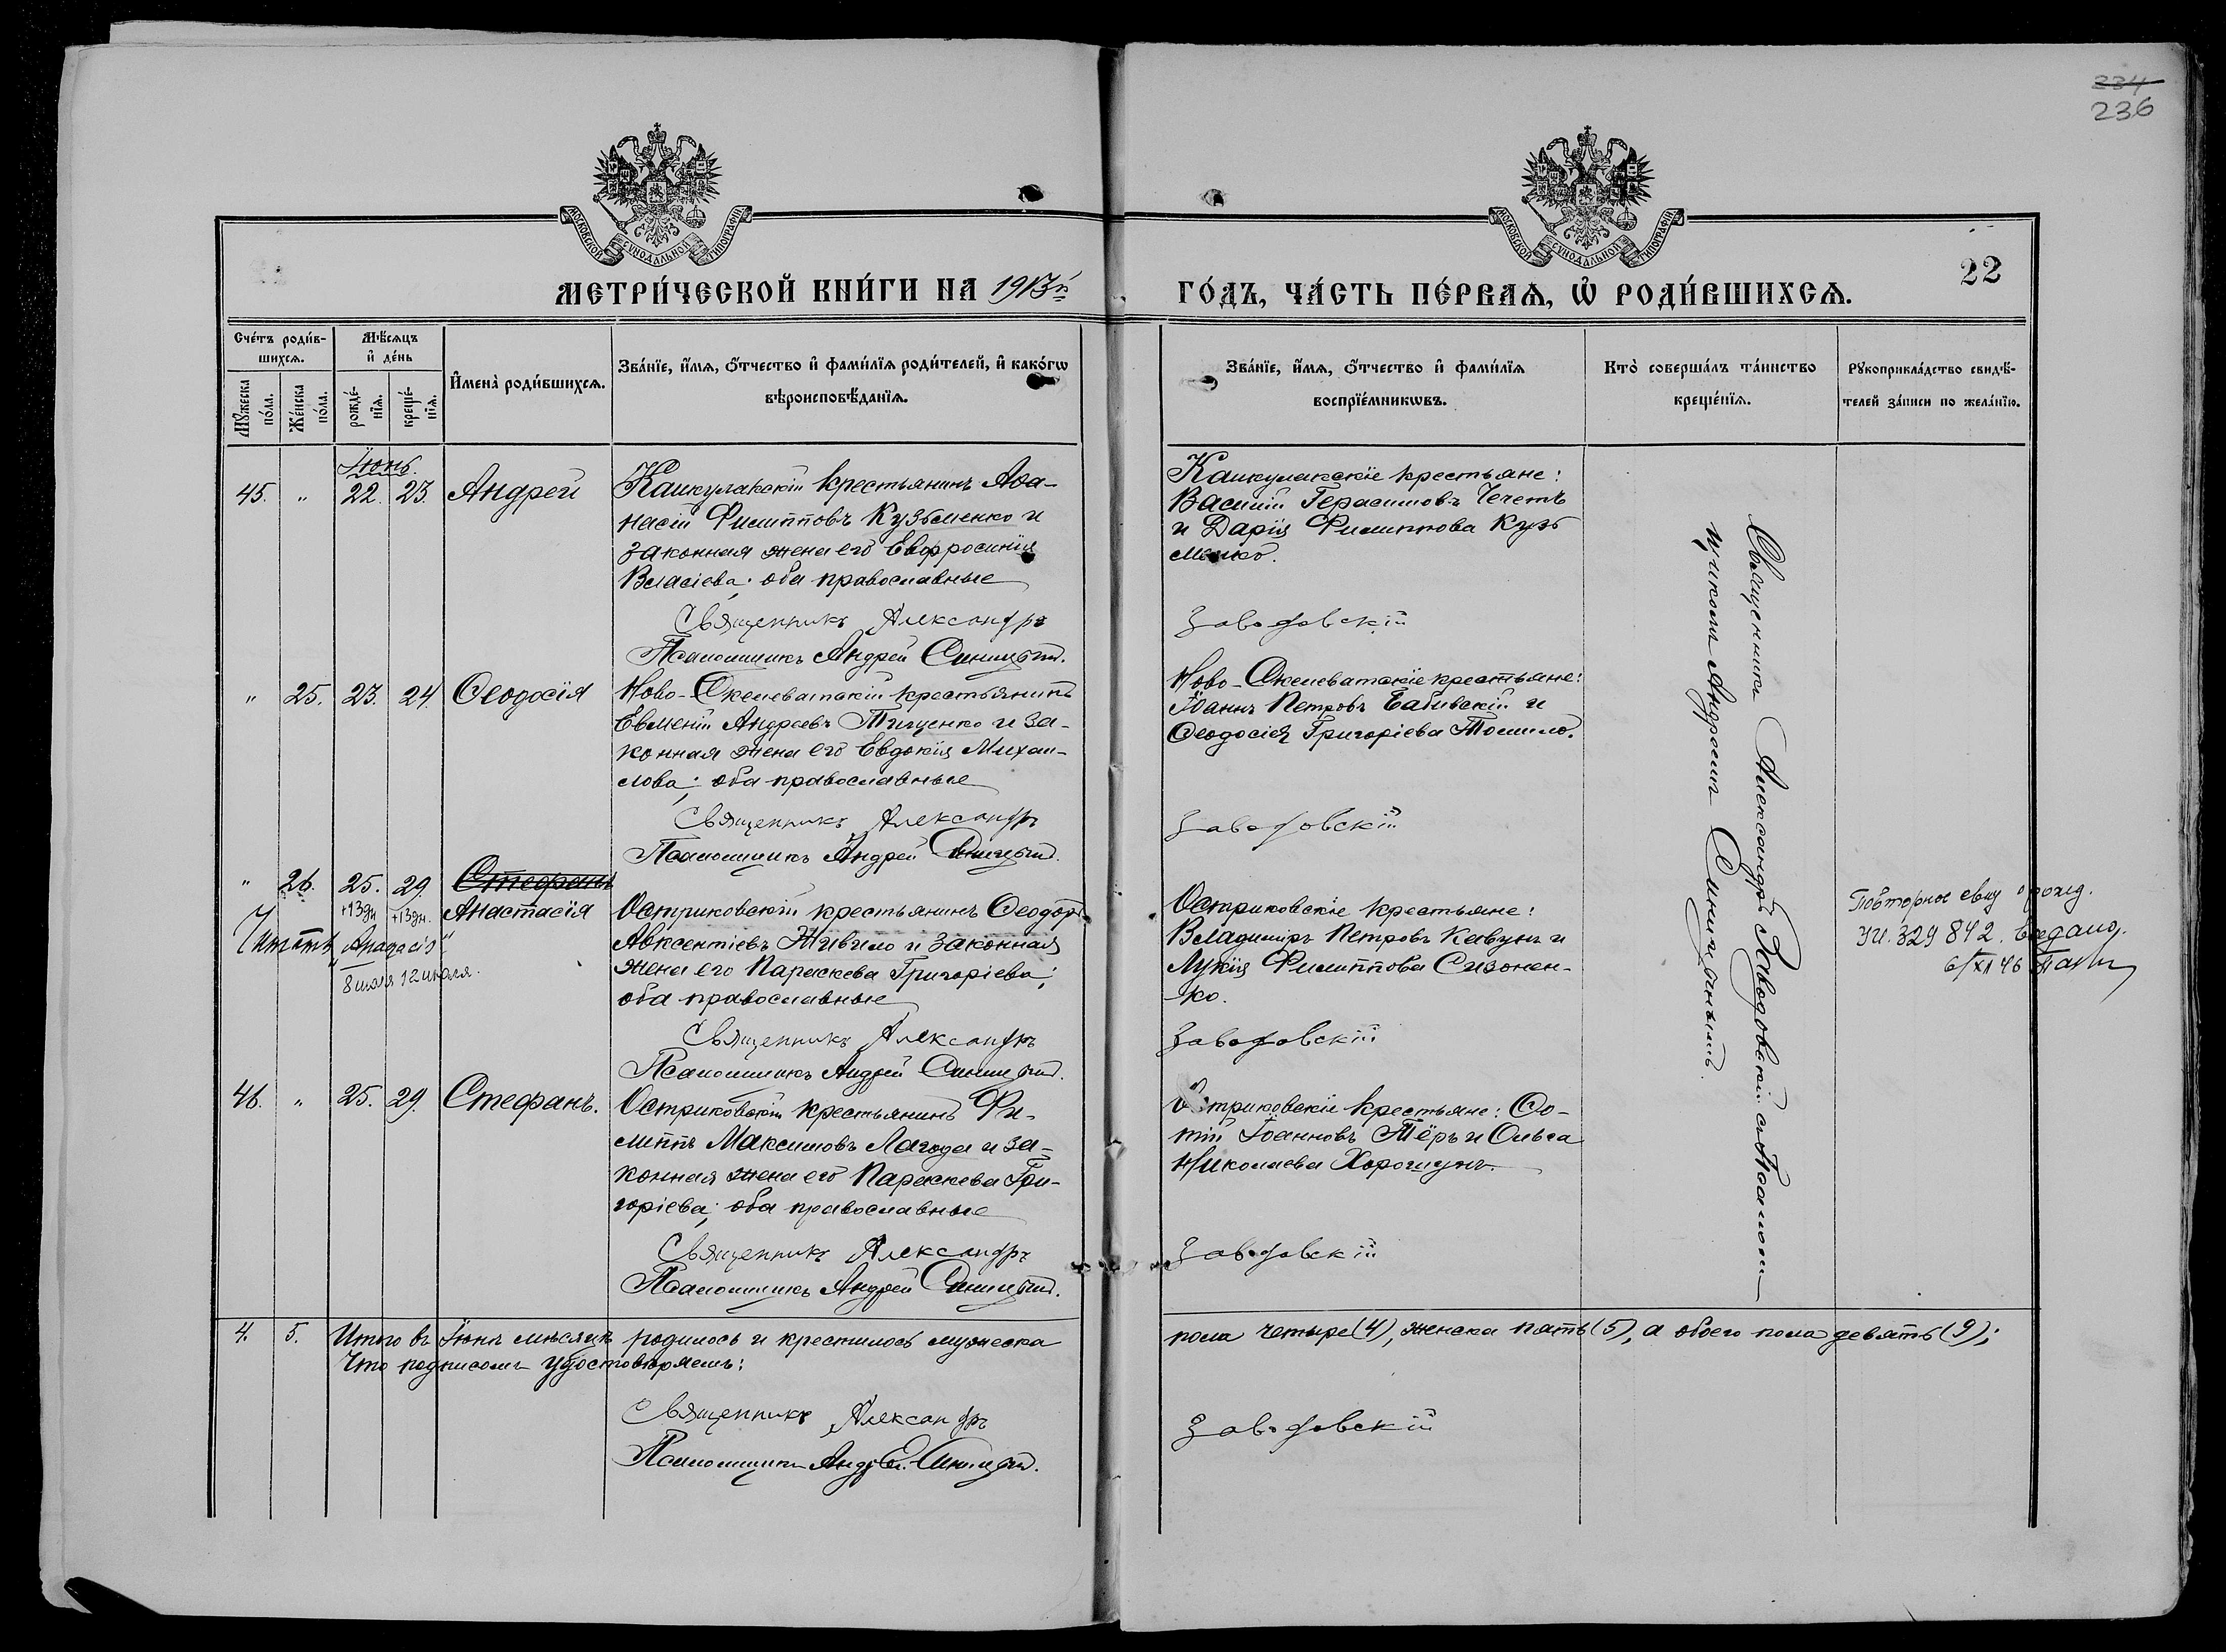 234
236
МОСКОВСКОЙ СѴНОДАЛЬНОЙ ТИПОГРАФІИ
МОСКОВСКОЙ СѴНОДАЛЬНОЙ ТИПОГРАФІИ
МЕТРИ́ЧЕСКОЙ КНИ́ГИ НА 1913й
ГО́ДЪ, ЧА́СТЬ ПЕ́РВАѦ, Ѡ҆ РОДИ́ВШИХСѦ.
22
Сче́тъ роди́в-
шихсѧ.
Мꙋжеска по́ла.
Же́нска по́ла.
Мѣ́сѧцъ
и҆ де́нь
рожде́-
нїѧ.
креще́-
нїѧ.
И҆мена̀ роди́вшихсѧ.
Зва́нїе, и҆́мѧ, ѻ҆́тчество и҆ фами́лїѧ роди́телей, и҆ како́гѡ
вѣроисповѣ́данїѧ.
Зва́нїе, и҆́мѧ, ѻ҆́тчество и҆ фами́лїѧ
воспрїе́мникѡвъ.
Кто̀ соверша́лъ та́инство
креще́нїѧ.
Рꙋкоприкла́дство свидѣ́-
телей за́писи по жела́нїю.
Іюнь.
45. " 22. 23. Андрей
Каикулакскій крестьянинъ Аѳа-
насій Филипповъ Кузьменко и
законная жена его Евфросинія
Власіева; оба православные
Священникъ Александръ
Псаломщикъ Андрей Синицын.
Каикулакскіе крестьяне:
Василій Герасимовъ Чечетъ
и Дарія Филиппова Кузь
менко.
Заводовскій
" 25. 23. 24. Ѳеодосія
Ново-Скелеватскій крестьянинъ
Евменій Андреевъ Тищенко и за-
конная жена его Евдокія Михаи-
лова; оба православные
Священникъ Александръ
Псаломщикъ Андрей Синицын.
Ново-Скелеватскіе крестьяне:
Іоаннъ Петровъ Бабивскій и
Ѳеодосія Григоріева Томило.
Заводовскій
" 26. 25. 29. Стефанъ
+13дн +13дн. Анастасія
Читать "Анастасія"
8 июля 12 июля.
Остриковскій крестьянинъ Ѳеодоръ
Авксентіевъ Живило и законная
жена его Параскева Григоріева;
оба православные
Священникъ Александръ
Псаломщикъ Андрей Синицын.
Остриковскіе крестьяне:
Владиміръ Петровъ Кавунъ и
Лукія Филиппова Сизонен-
ко.
Заводовскій
Повторное свид о рожд.
УИ. 329 842.
6/XI 46
46. " 25. 29. Стефанъ.
Остриковскій крестьянинъ Фи-
липпъ Максимовъ Лагода и за-
конная жена его Параскева Гри-
горіева; оба православные
Священникъ Александръ
Псаломщикъ Андрей Синицын.
Остриковскіе крестьяне: Фо-
тій Іоанновъ Тёръ и Ольга
Николаева Хорошунъ.
Заводовскій
Священникъ Александръ Заводовскій съ Псалом
щикомъ Андреемъ
4. 5. Итого въ Іюнѣ мѣсяцѣ родилось и крестилось мужеска
пола четыре (4), женска пять (5), а обоего пола девять (9);
Что подписомъ удостовѣряемъ:
Священникъ Александръ
Заводовскій
Псаломщикъ Андрей Синицын.